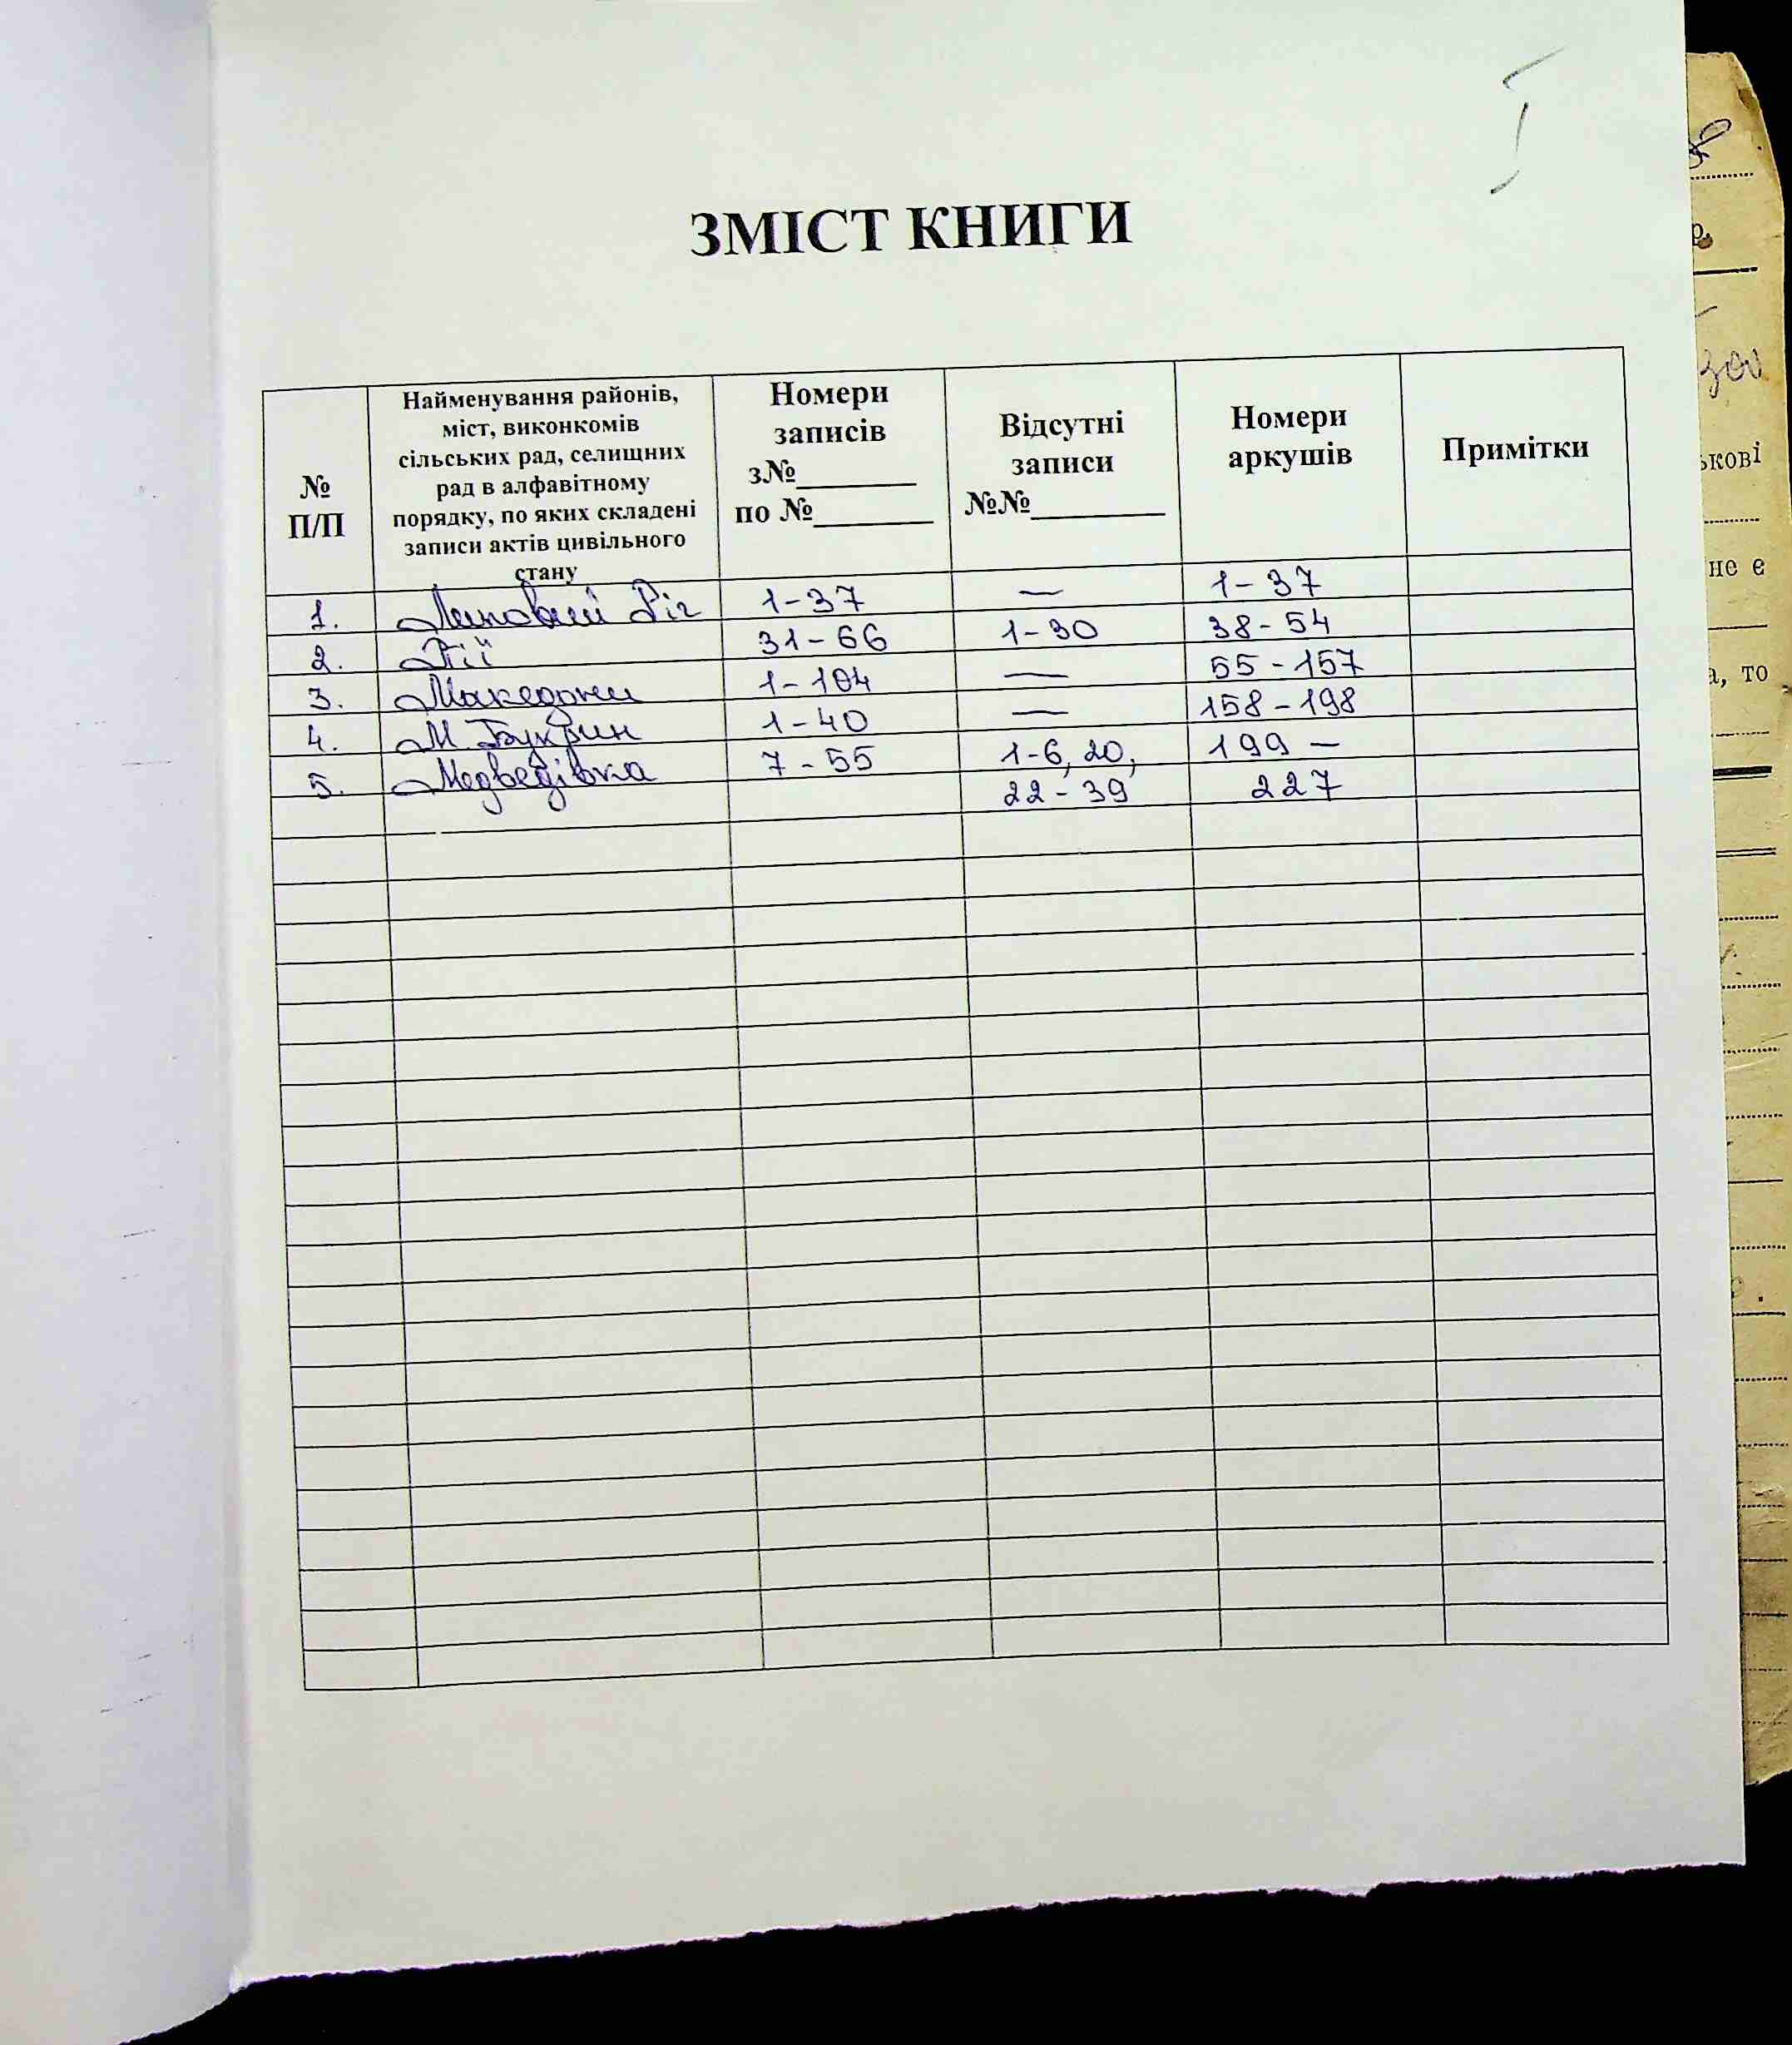 I
ЗМІСТ КНИГИ
№
П/П
Найменування районів,
міст, виконкомів
сільських рад, селищних
рад в алфавітному
порядку, по яких складені
записи актів цивільного
стану
Номери
записів
з№________
по №________
Відсутні
записи
№№_________
Номери
аркушів
Примітки
1. Липовий Ріг 1-37 — 1-37
2. Лії 31-66 1-30 38-54
3. Македони 1-104 — 55-157
4. М. Букрин 1-40 — 158-198
5. Медведівка 7-55 1-6, 20, 199 —
22-39 227
р.
ькові
не є
а, то